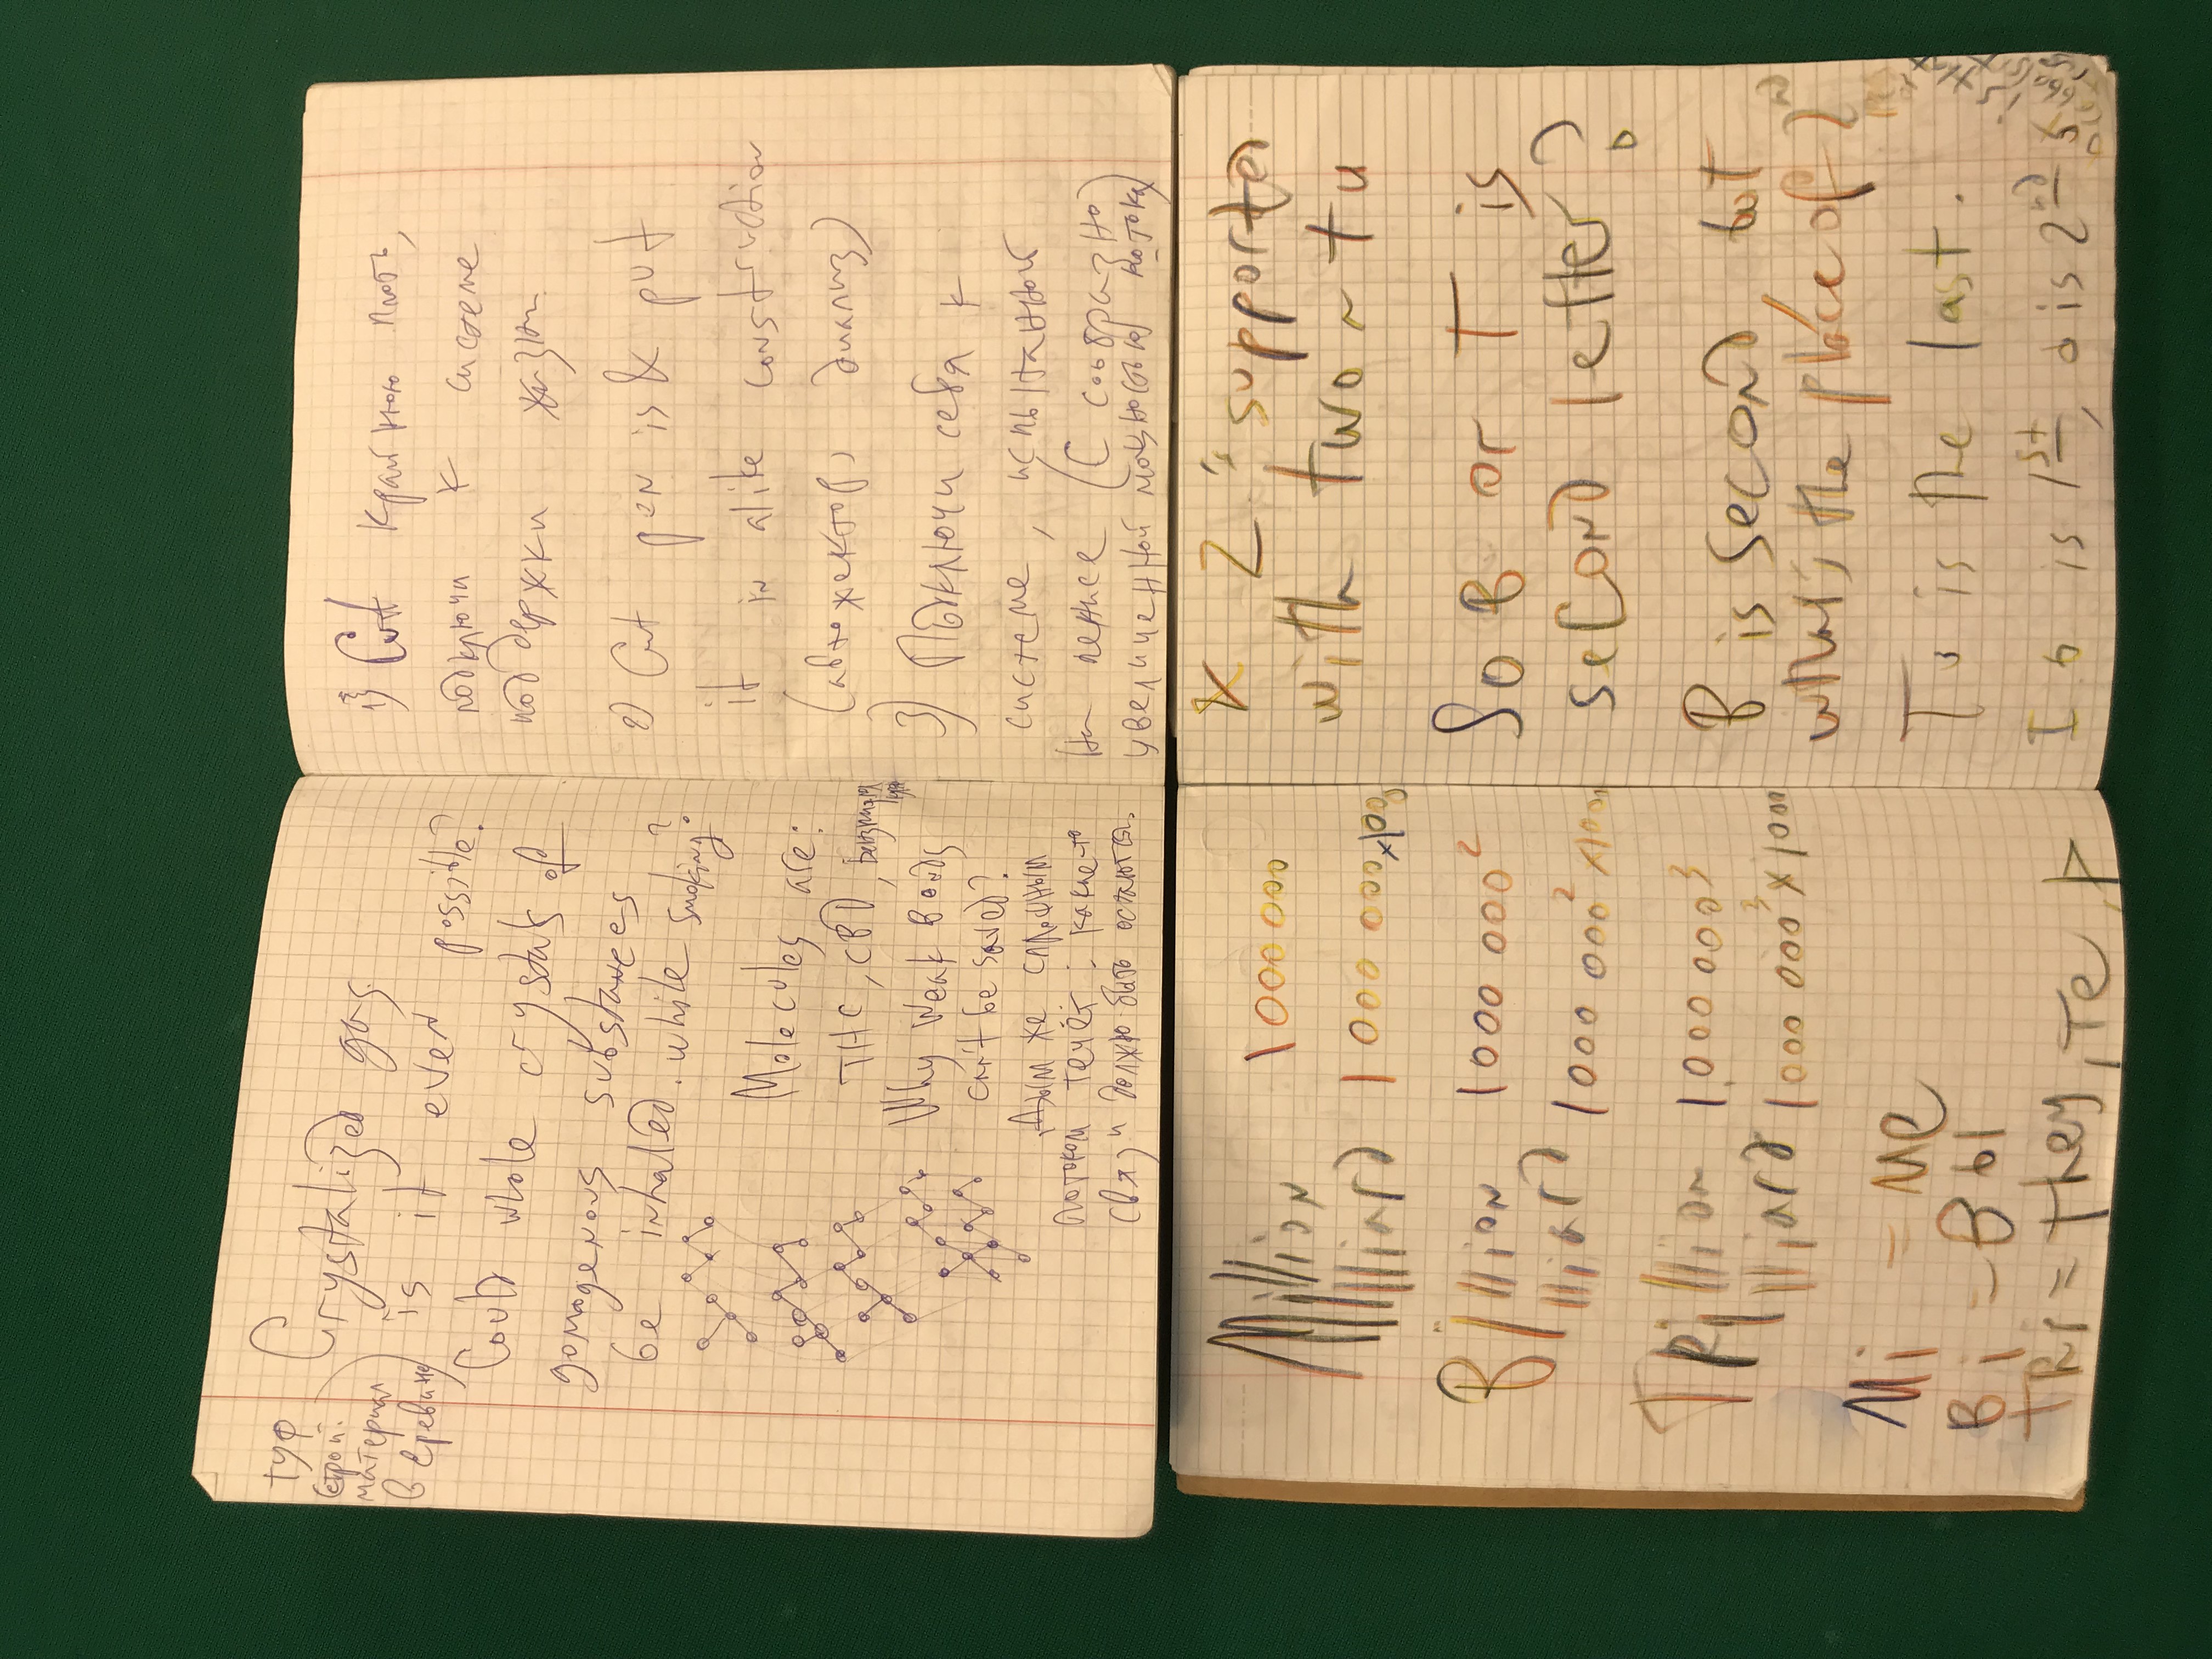 туф
строй.
материал
в Ереване
Crystalized gas
is it even possible?
Could whole crystals of
gomogenous substances
be inhaled. while smoking?
Molecules are:
THC, CBD,
Why weak Bonds
can't be saved?
Дым же сплошным
потоком течёт: какие-то
связи должно быть остаются
1) Cut крайнюю плоть,
подключи к системе
поддержки жизни
2) Cut pen is & put
it in alike construction
(автожектор, диализ)
3) Подключи себя к
системе, испытанной
на пенисе (С сообразно
увеличенной мощностью потока)
Million 1000 000
lliard 1 000 000 x1000
Billion 1000 000²
lliard 1000 000² x1000
TRillion 1.000 000³
lliard 1000 000³ x 1000
Mi = Me
Bi = Вы
TRi = They, Те,
& 2 is supported
with two ~ tu
So B or T is
second letter?
B is second, but
what's the place of 2nd
To is the last.
I 6 is 1st, is 2nd